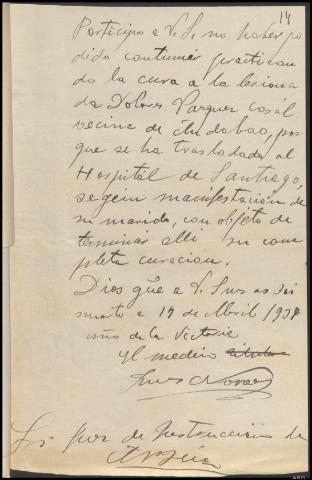 14
Participo a V. S. no haber po
dido continuar practican
do la cura a la lesiona
da Dolores Vazquez Casal
vecina de Andabao, por
que se ha trasladado al
Hospital de Santiago,
segun manifestación de
su marido, con objeto de
terminar alli su com
pleta curacion.
Dios gûe a V. S.
a 14 de Abril /
año de la Victoria
El medico
Luis
Sr. Juez de Instruccion de
Arzúa